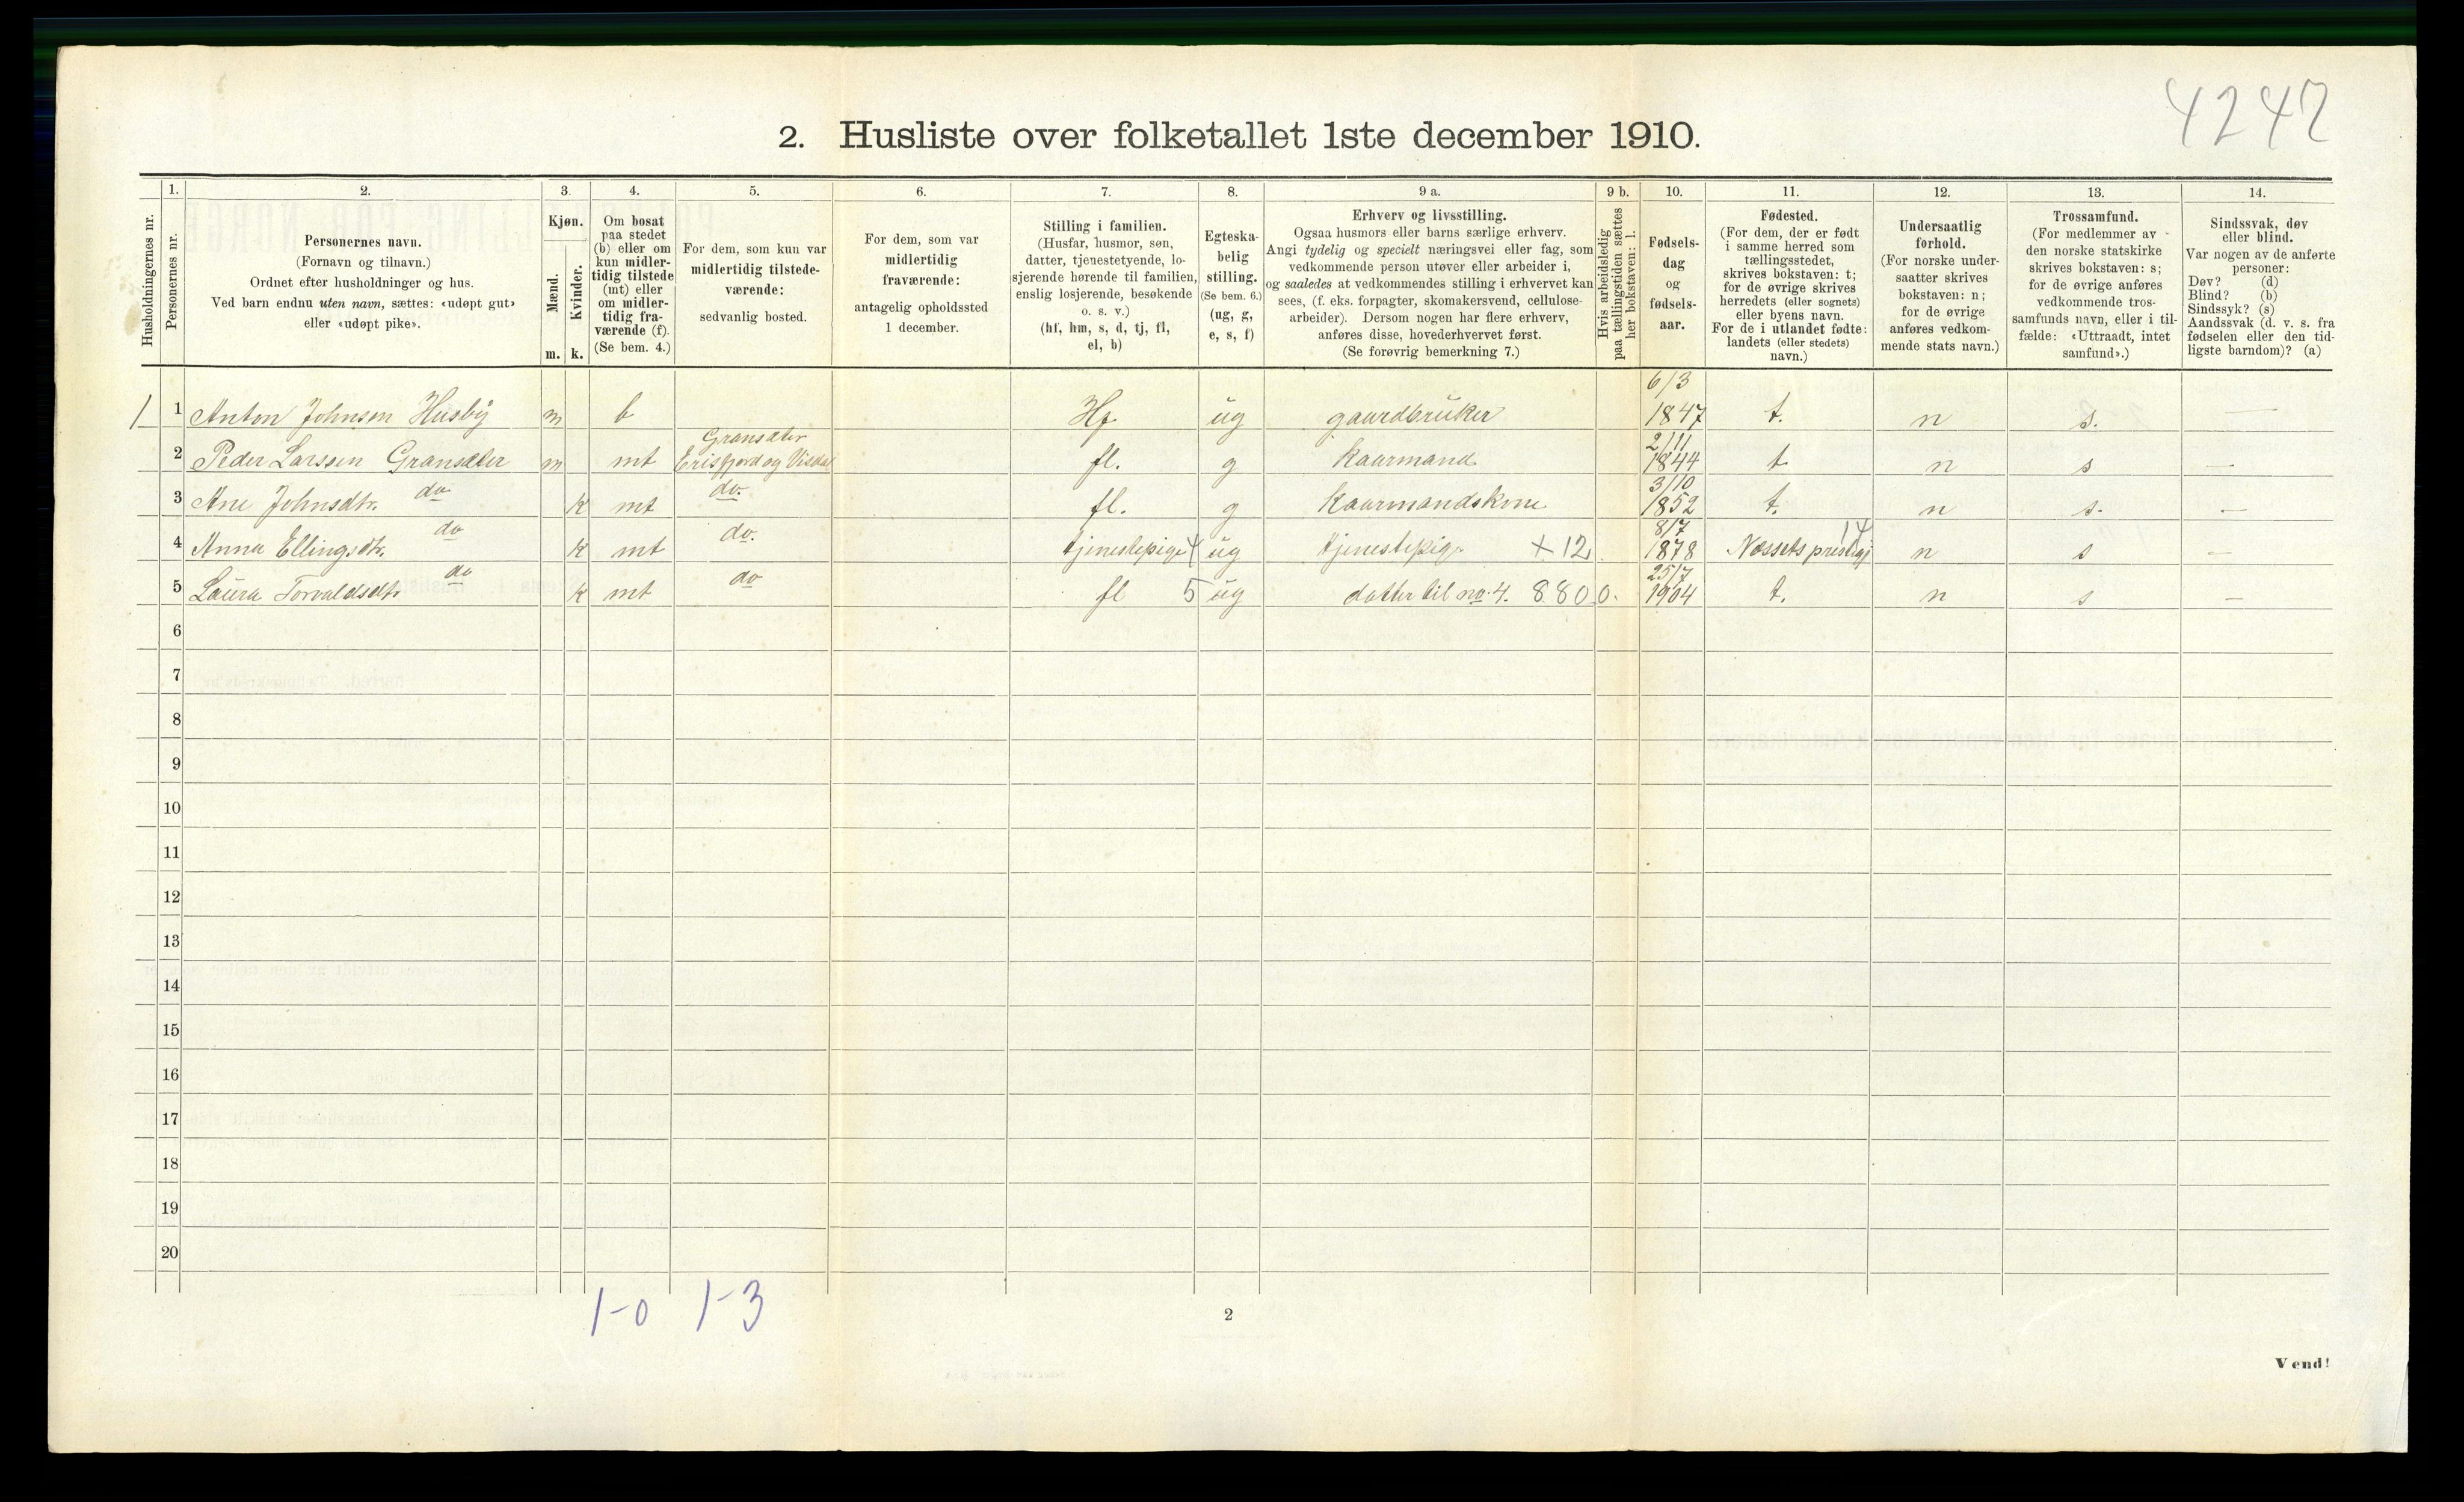 4242
2. Husliste over folketallet 1ste december 1910.
Husholdningernes nr.
1. Personernes nr.
2. Personernes navn.
(Fornavn og tilnavn.)
Ordnet efter husholdninger og hus.
Ved barn endnu uten navn, sættes: «udøpt gut»
eller «udøpt pike».
3. Kjøn.
Mænd. Kvinder.
m. k.
4. Om bosat
paa stedet
(b) eller om
kun midler-
tidig tilstede
(mt) eller
om midler-
tidig fra-
værende (f).
(Se bem. 4.)
5. For dem, som kun var
midlertidig tilstede-
værende:
sedvanlig bosted.
6. For dem, som var
midlertidig
fraværende:
antagelig opholdssted
1 december.
7. Stilling i familien.
(Husfar, husmor, søn,
datter, tjenestetyende, lo-
sjerende hørende til familien,
enslig losjerende, besøkende
o. s. v.)
(hf, hm, s, d, tj, fl,
el, b)
8. Egteska-
belig
stilling.
(Se bem. 6.)
(ug, g,
e, s, f)
9 a. Erhverv og livsstilling.
Ogsaa husmors eller barns særlige erhverv.
Angi tydelig og specielt næringsvei eller fag, som
vedkommende person utøver eller arbeider i,
og saaledes at vedkommendes stilling i erhvervet kan
sees, (f. eks. forpagter, skomakersvend, cellulose-
arbeider). Dersom nogen har flere erhverv,
anføres disse, hovederhvervet først.
(Se forøvrig bemerkning 7.)
9 b. Hvis arbeidsledig
paa tællingstiden sættes
her bokstaven: l.
10. Fødsels-
dag
og
fødsels-
aar.
11. Fødested.
(For dem, der er født
i samme herred som
tællingsstedet,
skrives bokstaven: t;
for de øvrige skrives
herredets (eller sognets)
eller byens navn.
For de i utlandet fødte:
landets (eller stedets)
navn.)
12. Undersaatlig
forhold.
(For norske under-
saatter skrives
bokstaven: n;
for de øvrige
anføres vedkom-
mende stats navn.)
13. Trossamfund.
(For medlemmer av
den norske statskirke
skrives bokstaven: s;
for de øvrige anføres
vedkommende tros-
samfunds navn, eller i til-
fælde: «Uttraadt, intet
samfund».)
14. Sindssvak, døv
eller blind.
Var nogen av de anførte
personer:
Døv? (d)
Blind? (b)
Sindssyk? (s)
Aandssvak (d. v. s. fra
fødselen eller den tid-
ligste barndom)? (a)
1 1 Anton Johnsen Husby m b Hf ug gaardbruker 6/3 1847 t. n s. —
2 Peder Larssen Gransæter m mt Gransæter Erisfjord og Visdal fl. g Kaarmand 2/11 1844 t n s —
3 Ane Johnsdtr. do k mt do. fl. g Kaarmandskone 3/10 1852 t. n s. —
4 Anna Ellingsdtr. do k mt do. tjenestepige 4 ug tjenestepige +12 8/7 1878 Nessets prestegj 14 n s —
5 Laura Torvaldsdtr do k mt do fl 5 ug datter til no. 4. 8800. 25/7 1904 t. n s —
6
7
8
9
10
11
12
13
14
15
16
17
18
19
20
1-0 1-3
2
Vend!